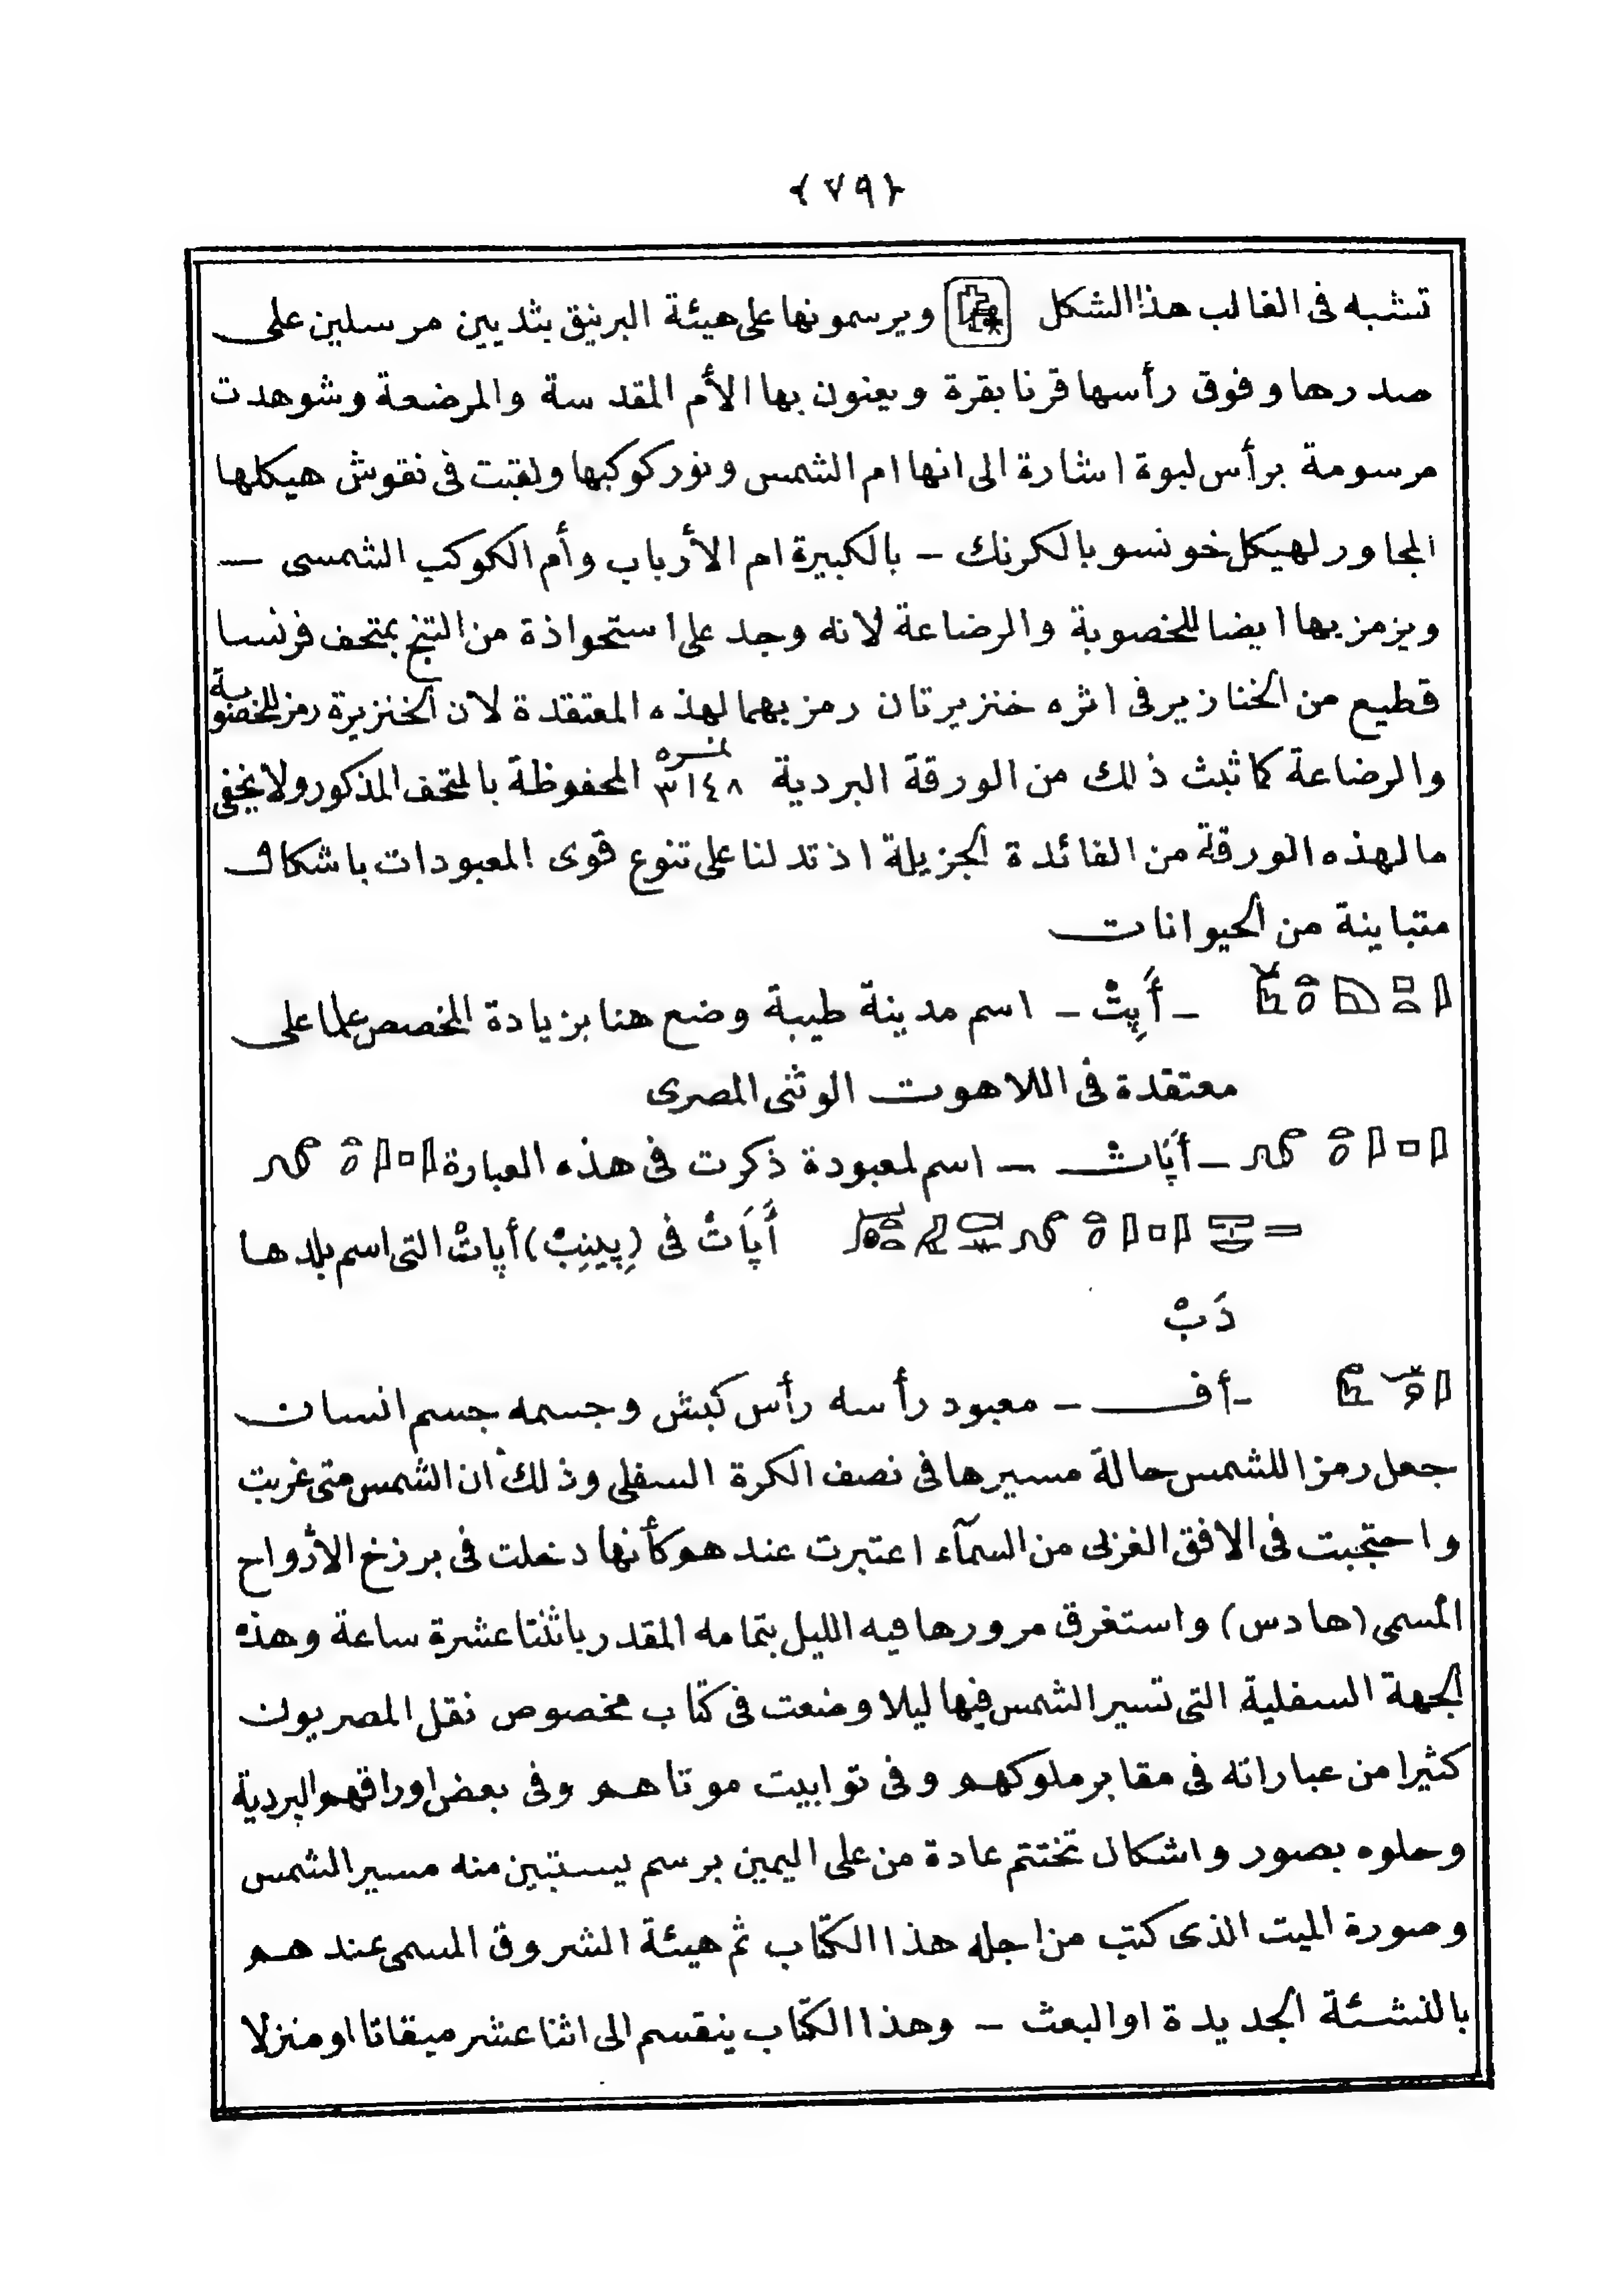 ﴿٧٩﴾
تشبه فى الغالب هذا الشكل ويرسمونها على هيئة البرنيق بثديين مرسلين على
صدرها وفوق رأسها قرنا بقرة ويعنون بها الأم المقدسة والمرضعة وشوهدت
مرسومة برأس لبوة اشارة الى انها ام الشمس ونور كوكبها ولقبت فى نقوش هيكلها
المجاور لهيكل خونسو بالكرنك – بالكبيرة ام الأرباب وأم الكوكب الشمسى –
ويزمز بها ايضا للخصوبة والرضاعة لانه وجد على استحواذة من التنج بمتحف فرنسا
قطيع من الخنازير فى اثره خنزيرتان رمز بهما لهذه المعتقدة لان الخنزيرة رمز للخصوبة
والرضاعة كما ثبث ذلك من الورقة البردية نمره ٣١٤٨ المحفوظة بالمتحف المذكور ولا يخفى
ما لهذه الورقة من الفائدة الجزيلة اذ تدلنا على تنوع قوى المعبودات باشكال
متباينة من الحيوانات
– أَپِتْ – اسم مدينة طيبة وضع هنا بزيادة المخصص علما على
معتقدة فى اللاهوت الوثنى المصرى
– أَپَاتْ – اسم لمعبودة ذكرت فى هذه العبارة
أَپَاتْ فى (پِينِبْ) أپاتْ التى اسم بلدها
دَبْ
– أف – معبود رأسه رأس كبش وجسمه جسم انسان
جعل رمزا للشمس حالة مسيرها فى نصف الكرة السفلى وذلك ان الشمس متى غربت
واحتجبت فى الافق الغزبى من السمآء اعتبرت عندهم كأنها دخلت فى برزخ الأرواح
المسمى (هادس) واستغرق مرورها فيه الليل بتمامه المقدر باثنتا عشرة ساعة وهذه
الجهة السفلية التى تسير الشمس فيها ليلا وضعت فى كتاب مخصوص نقل المصريون
كثيرا من عباراته فى مقابر ملوكهم وفى توابيت موتاهم وفى بعض اوراقهم البردية
وحلوه بصور واشكال تختتم عادة من على اليمين برسم يستبين منه مسير الشمس
وصورة الميت الذى كتب من اجله هذا الكتاب ثم هيئة الشروق المسمى عندهم
بالنشئة الجديدة او البعث – وهذا الكتاب ينقسم الى اثنا عشر ميقاتا او منزلا